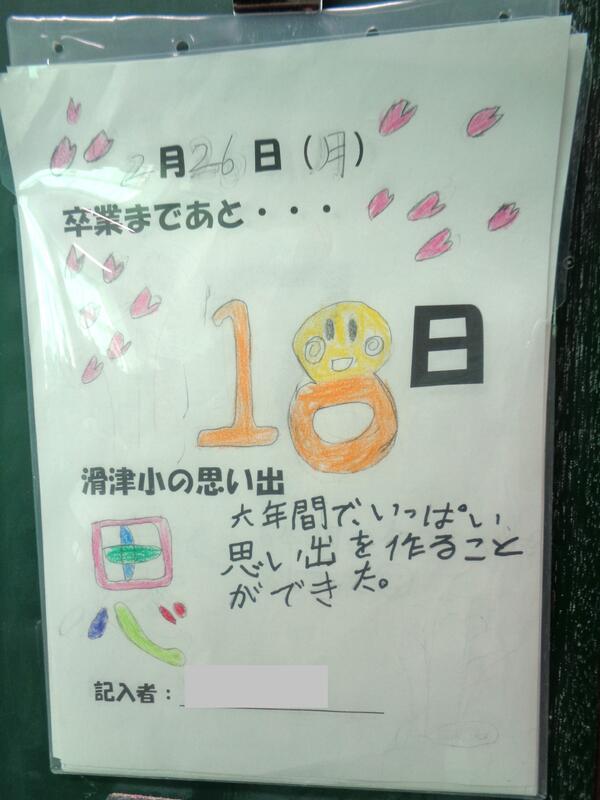 2月26日(月)
卒業まであと・・・
18日
滑津小の思い出
思
六年間で、いっぱい
思い出を作ること
ができた。
記入者：